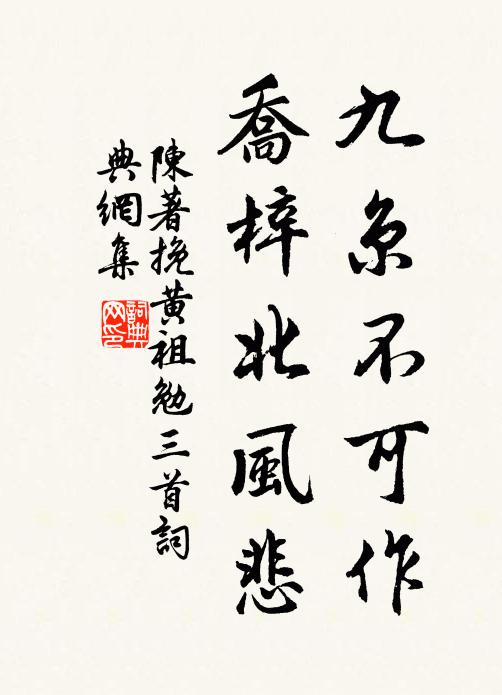 九京不可作
喬梓北風悲
陳著挽黄祖勉三首詞
典網集
詞典網印